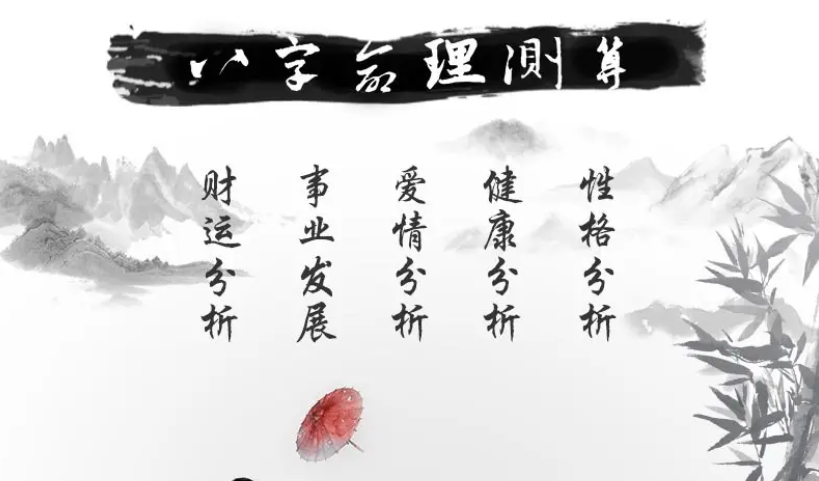 八字命理測算
财运分析
事业发展
爱情分析
健康分析
性格分析